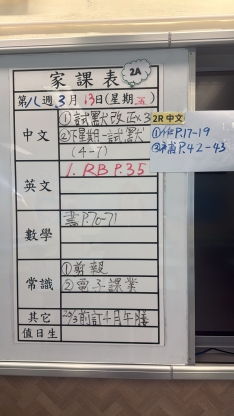 家課表
2A
第八週3月13日(星期五)
中文
①試默改正x3
②下星期一試默
(4-7)
2R 中文
①作P.17-19
②補P.42-43
英文
1. RB P.35
數學
書P.70-71
常識
①剪報
②電子課業
其它
前訂十月午膳
值日生